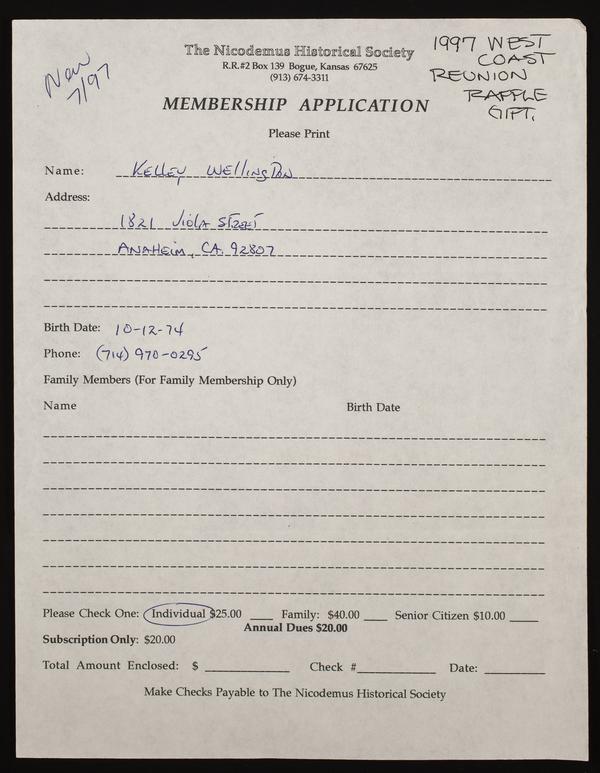 New
7/97
The Nicodemus Historical Society
R.R.#2 Box 139 Bogue, Kansas 67625
(913) 674-3311
1997 WEST
COAST
REUNION
RAFFLE
GIFT.
MEMBERSHIP APPLICATION
Please Print
Name: KELLEY WELLINGTON
Address:
1821 VIOLA STREET
ANAHEIM, CA. 92807
Birth Date: 10-12-74
Phone: (714) 970-0295
Family Members (For Family Membership Only)
Name Birth Date
Please Check One: Individual $25.00 ____ Family: $40.00 ____ Senior Citizen $10.00 ____
Annual Dues $20.00
Subscription Only: $20.00
Total Amount Enclosed: $ ____ Check # ____ Date: ____
Make Checks Payable to The Nicodemus Historical Society